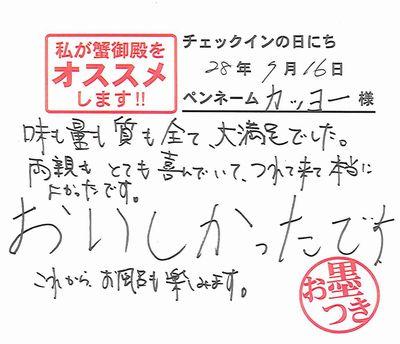 私が蟹御殿を
オススメ
します!!
チェックインの日にち
28年9月16日
ペンネーム カッヨー 様
味も量も質も全て、大満足でした。
両親も とても喜んでいて、つれて来て本当に
よかったです。
おいしかったです
これから お風呂も楽しみます。
お墨つき